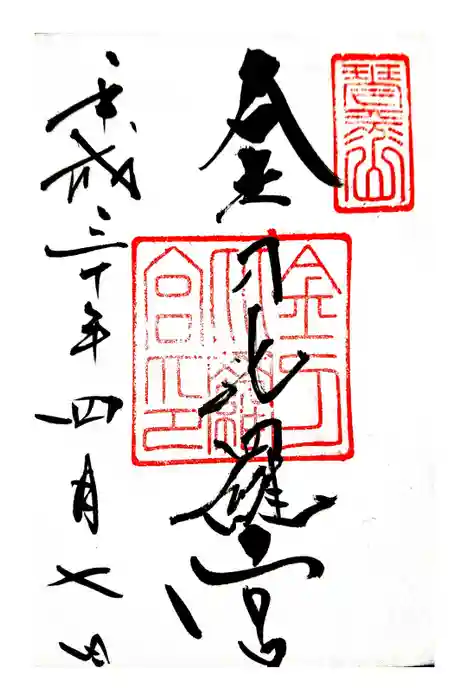 琴平山
金刀比羅宮
金刀比羅宮之印
平成三十年四月七日